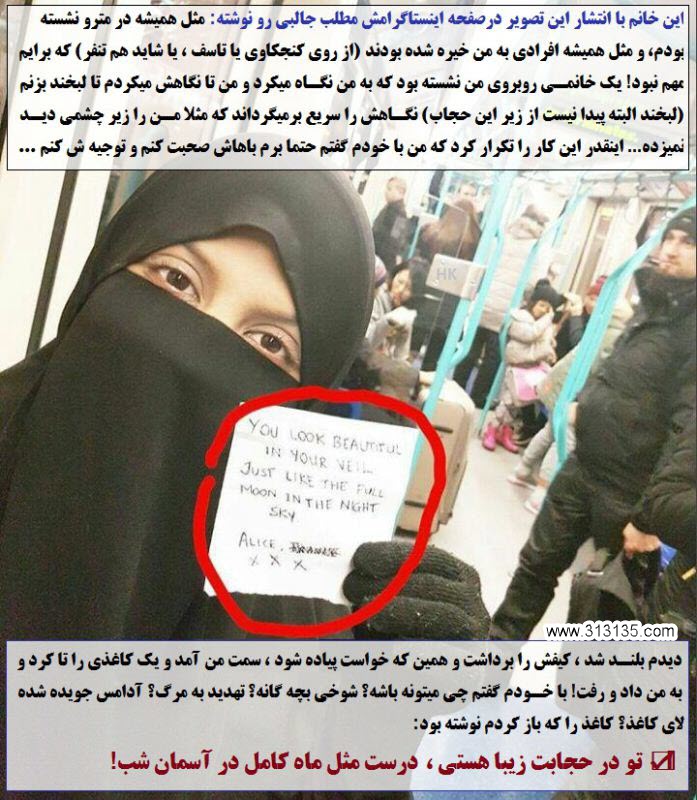 این خانم با انتشار این تصویر درصفحه اینستاگرامش مطلب جالبی رو نوشته: مثل همیشه در مترو نشسته
بودم، و مثل همیشه افرادی به من خیره شده بودند (از روی کنجکاوی یا تاسف ، یا شاید هم تنفر) که برایم
مهم نبود! یک خانمـی روبروی من نشسته بود که به من نگـاه میکرد و من تا نگاهش میکردم تا لبخند بزنم
(لبخند البته پیدا نیست از زیر این حجاب) نگـاهش را سریع برمیگرداند که مثلا مـن را زیر چشمی دیـد
نمیزده... اینقدر این کار را تکرار کرد که من با خودم گفتم حتما برم باهاش صحبت کنم و توجیه ش کنم ...
HK
YOU LOOK BEAUTIFUL
IN YOUR VEIL
JUST LIKE THE FULL
MOON IN THE NIGHT
SKY.
ALICE.
x x x
www.313135.com
دیدم بلنـد شد ، کیفش را برداشت و همین که خواست پیاده شود ، سمت من آمد و یک کاغذی را تا کرد و
به من داد و رفت! با خـودم گفتم چی میتونه باشه؟ شوخی بچه گانه؟ تهدید به مرگ؟ آدامس جویده شده
لای کاغذ؟ کاغذ را که باز کردم نوشته بود:
☑ تو در حجابت زیبا هستی ، درست مثل ماه کامل در آسمان شب!